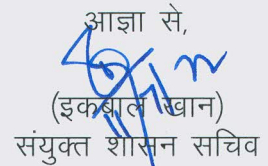 आज्ञा से,
(इकबाल खान)
संयुक्त शासन सचिव